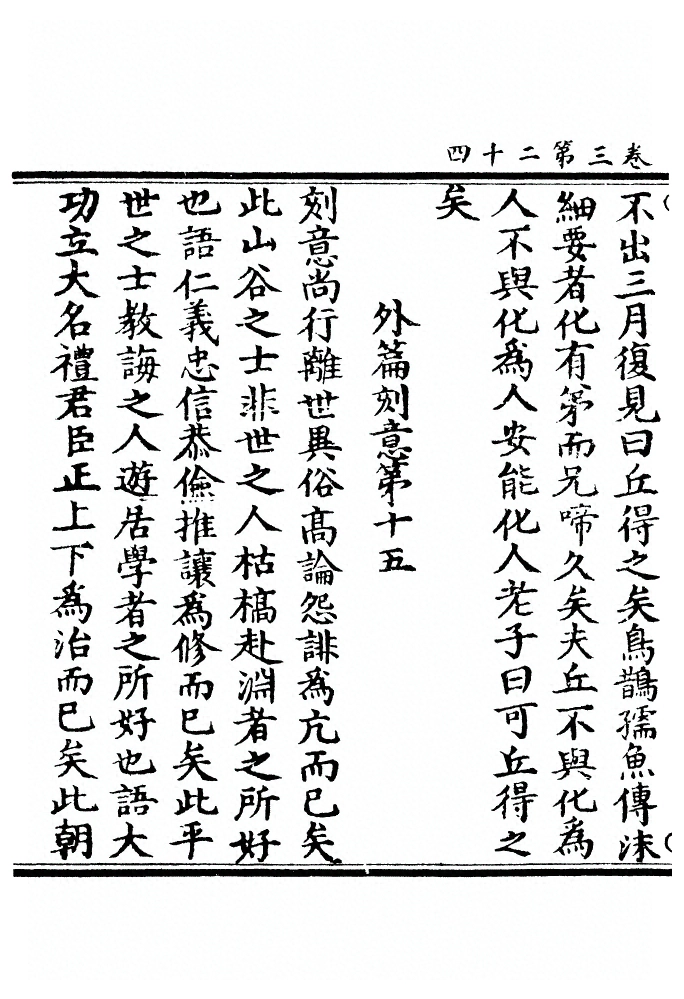 卷三第二十四
不出三月復見曰丘得之矣鳥鵲孺魚傳沫
細要者化有弟而兄啼久矣夫丘不與化爲
人不與化爲人安能化人老子曰可丘得之
矣
外篇刻意第十五
刻意尚行離世異俗高論怨誹爲亢而已矣
此山谷之士非世之人枯槁赴淵者之所好
也語仁義忠信恭儉推讓爲修而已矣此平
世之士教誨之人遊居學者之所好也語大
功立大名禮君臣正上下爲治而已矣此朝